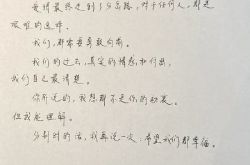 爱情最终走到了分岔路，对于任何人，都是
艰难的选择。
我们，都需要勇敢向前。
我们的过去，真实的情感和付出，
我们自己最清楚。
你所说的，我想那不是你的初衷。
但我能理解。
分别时的话，我再说一次：希望我们都幸福。